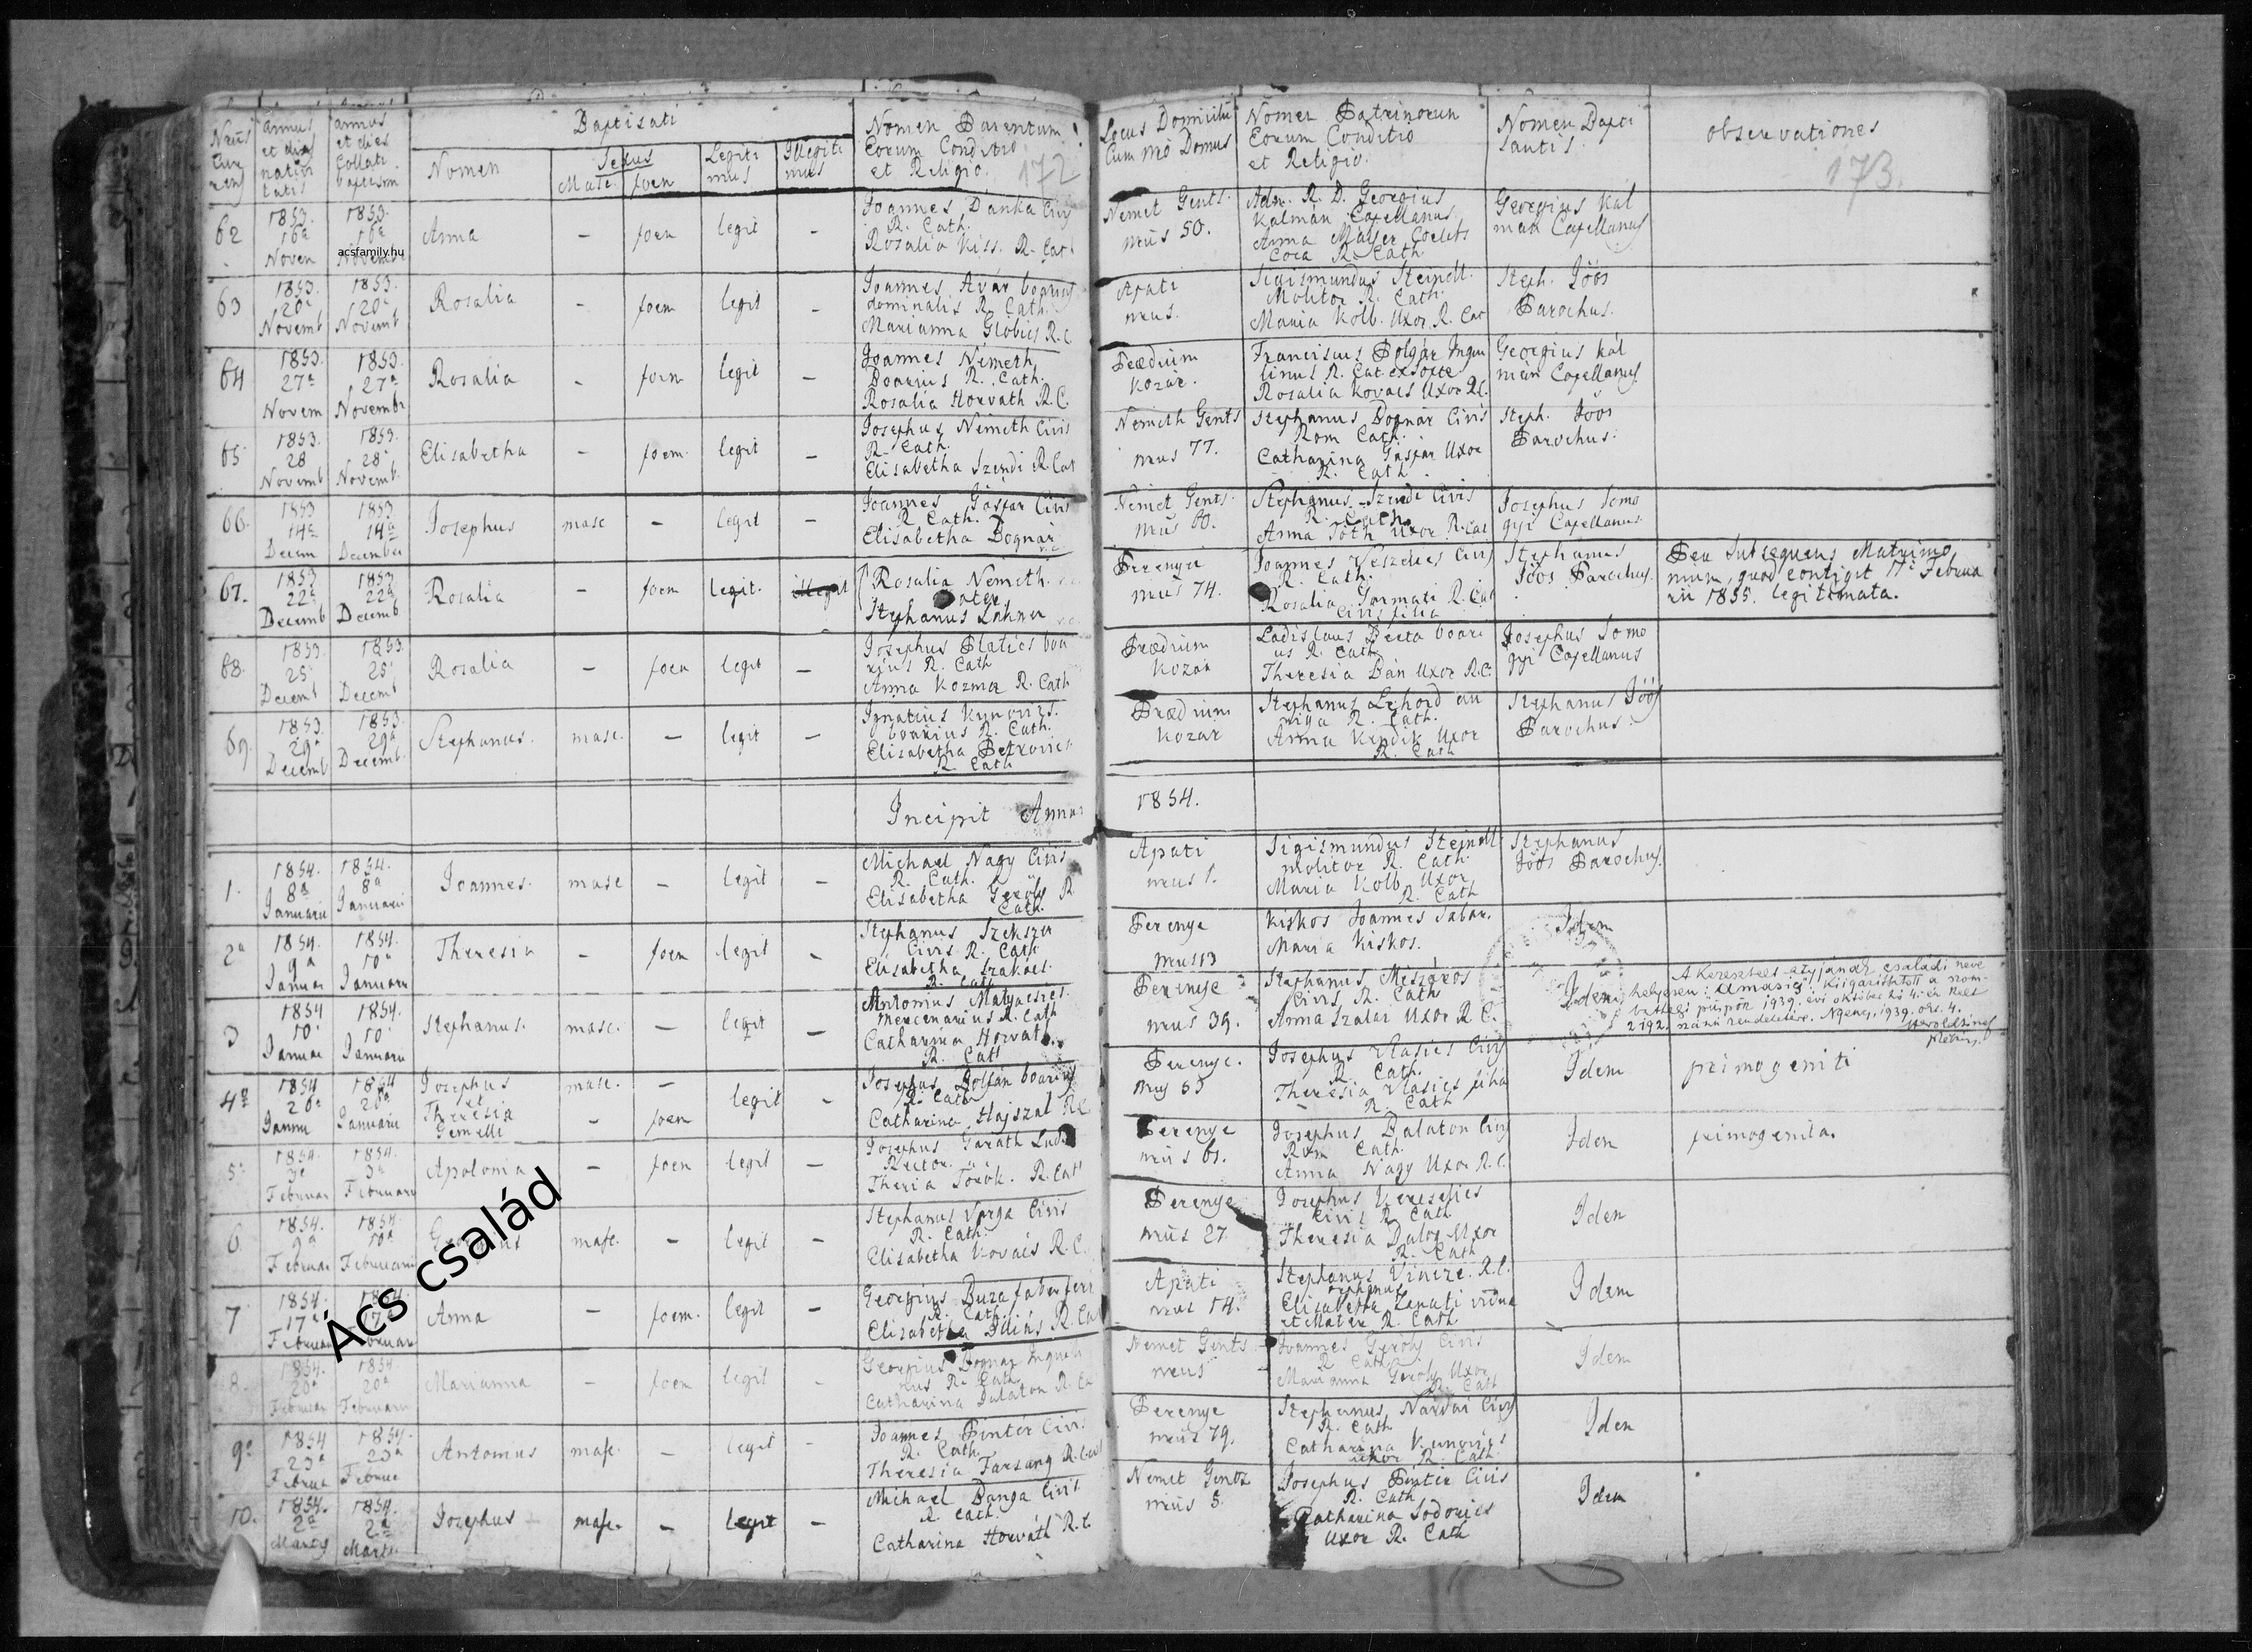 Baptisati
Nomen
Sexus
Masc. foem
Legiti
mus
Illegiti
mus
Nomen Parentum
Eorum Conditio
et Religio.
172
Locus Domicilii
Cum nro Domus
Nomen Patrinorum
Eorum Conditio
et Religio.
Nomen Bapti
santis.
observationes
173.
62 1853. 16a Novem 1853. 16a Novemb
acsfamily.hu
Anna – foem legit –
Joannes Danka Civis
R. Cath.
Rosalia Kiss. R. Cat
Nemet Gents.
nrus 50.
Adm. R. D. Georgius
Kalmán Capellanus
Anna
R. Cath
Georgius Kál
mán Capellanus
63 1853. 20a Novemb 1853. 20a Novemb
Rosalia – foem legit –
Joannes Avár boarius
dominalis R. Cath.
Marianna R. C.
Apati
nrus.
Sigismundus Steindl.
Molitor R. Cath.
Maria Kolb. Uxor R. Cat
Steph. Jóós
Parochus.
64 1853. 27a Novem 1853. 27a Novembr
Rosalia – foem legit –
Joannes Nemeth
Boarius R. Cath.
Rosalia Horvath R. C.
Praedium
Kozár.
Franciscus Polgár Inqui
linus R. Cat.
Rosalia Kovacs Uxor R. C.
Georgius Kál
mán Capellanus
65 1853. 28 Novemb 1853. 28 Novemb.
Elisabetha – foem. legit –
Josephus Németh Civis
R. Cath.
Elisabetha Szendi R. Cat
Nemeth Gents
nrus 77.
Stephanus Bognár Civis
Rom Cath.
Catharina Gáspár Uxor
R. Cath
Steph. Jóós
Parochus.
66. 1853 14a Decem 1853 14a December
Josephus masc – legit –
Joannes Gáspár Civis
R. Cath.
Elisabetha Bognár
Nemet Gents.
nrus 60.
Stephanus Szendi Civis
R. Cath.
Anna Tóth Uxor R. Cat
Josephus Somo
gyi Capellanus.
67. 1853 22a Decemb 1853 22a Decemb
Rosalia – foem legit. illegit
Rosalia Nemeth.
Stephanus
Perenye
nrus 74.
Joannes Civis
R. Cath.
Rosalia R. Cat
Civis filia
Stephanus
Jóós Parochus.
Per Subsequens Matrimo
nium, quod contigit 11a Februa
rii 1855. legitimata.
68. 1853. 25 Decemb 1853. 25 Decemb
Rosalia – foem legit –
Josephus Platics boa
rius R. Cath
Anna Kozma R. Cath
Praedium
Kozár
Ladislaus boari
us R. Cath
Theresia Bán Uxor R. C.
Josephus Somo
gyi Capellanus
69. 1853. 29a Decemb 1853. 29a Decemb.
Stephanus. masc. – legit –
Ignatius Kunovics.
boarius R. Cath.
Elisabetha Petrovics
R. Cath
Praedium
Kozár
Stephanus au
riga R. Cath.
Anna Uxor
R. Cath
Stephanus Jóós
Parochus.
Incipit Annus 1854.
1. 1854. 8a Januarii 1854. 8a Januarii
Joannes. masc – legit –
Michael Nagy Civis
R. Cath.
Elisabetha Geröly R.
Cath.
Apati
nrus 1.
Sigismundus Steindl
Molitor R. Cath.
Maria Kolb Uxor
R. Cath
Stephanus
Jóós Parochus.
2a 1854. 9a Januar 1854. 10a Januarii
Theresia – foem legit –
Stephanus Szekszer
Civis R. Cath
Elisabetha Szakács.
R. Cath
Perenye
nrus 13
Kiskos Joannes
Maria Kiskos.
Idem
3 1854 10 Januar 1854. 10 Januarii
Stephanus. masc. – legit –
Antonius
Mercenarius R. Cath
Catharina Horvath.
R. Cath
Perenye
nrus 39.
Stephanus Mészáros
Civis R. Cath
Anna Szalai Uxor R. C.
Idem
A keresztelt atyjának családi neve
helyesen: Kiigazittatott a szom-
bathelyi püspök 1939. évi október hó 4.-én kelt
2192. számú rendeletére. 1939. okt. 4.
4a 1854 20a Januar 1854 20a Januarii
Josephus masc. –
et
Theresia – foem
Gemelli
legit –
Josephus Zoltán boarius
R. Cath
Catharina Hajszal R. C.
Perenye.
Josephus Vlasics Civis
R. Cath.
Theresia Vlasics filia
R. Cath
Idem
primogeniti
5. 1854. Februar 1854. Februarii
Apolonia – foem legit –
Josephus Garáth Ludi
Rector.
Theria Török. R. Cat
Perenye
nrus 61.
Josephus Balaton Civis
Rom Cath.
Anna Nagy Uxor R. C.
Idem
primogenita.
6 1854. 9a Februar 1854 10a Februarii
masc. – legit –
Stephanus Varga Civis
R. Cath.
Elisabetha Kovács R. C.
Perenye
nrus 27
Josephus
Civis R. Cath
Theresia Uxor
R. Cath
Idem
7 1854. 17a Februar 1854. 17a Februar
Anna – foem. legit –
Georgius Buza faber ferr
R. Cath
Elizabetha Illiés R. Cat
Apati
nrus 14.
Stephanus Vincze. R. C.
Elisabetha vidua
et Mater R. Cath
Idem
8. 1854. 20a Februar 1854 20a Februarii
Marianna – foem legit –
Georgius Bognar Inquili
nus R. Cath
Catharina Balaton R. Ca
Nemet Gents
nrus –
Joannes Geröly Civis
R. Cath
Marianna Geröly Uxor
R. Cath
Idem
9. 1854 23a Februa 1854. 23a Februa
Antonius masc. – legit –
Joannes Pintér Civis
R. Cath.
Theresia Farsang R. Cat
Perenye
nrus 79.
Stephanus Nárdai Civis
R. Cath
Catharina Kunovics
uxor R. Cath
Idem
10. 1854. 2a Martii 1854. 2a Martii
Josephus masc. – legit –
Michael Banga Civis
R. Cath.
Catharina Horváth R. C.
Nemet Gents
nrus 5.
Josephus Pintér Civis
R. Cath
Catharina Sodorics
Uxor R. Cath
Idem
Ács család